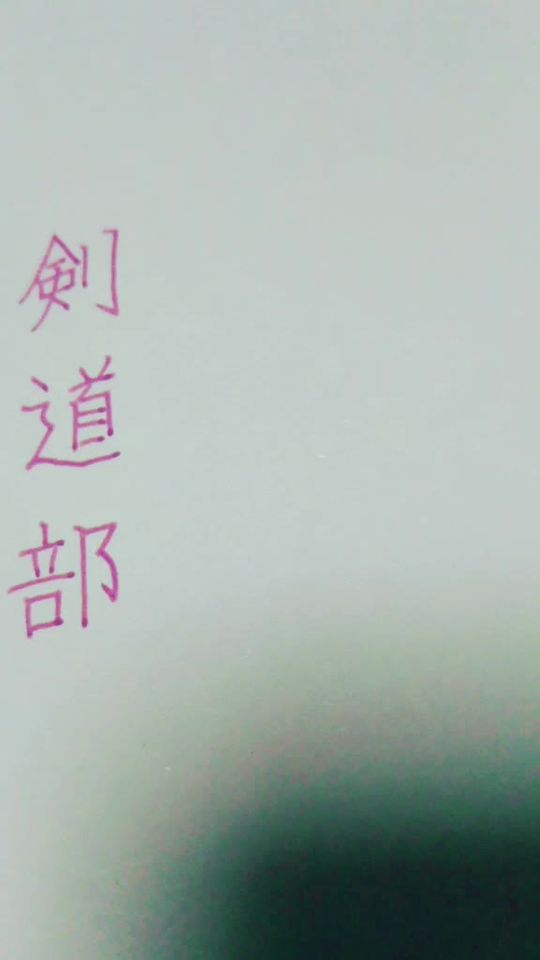 剣道部